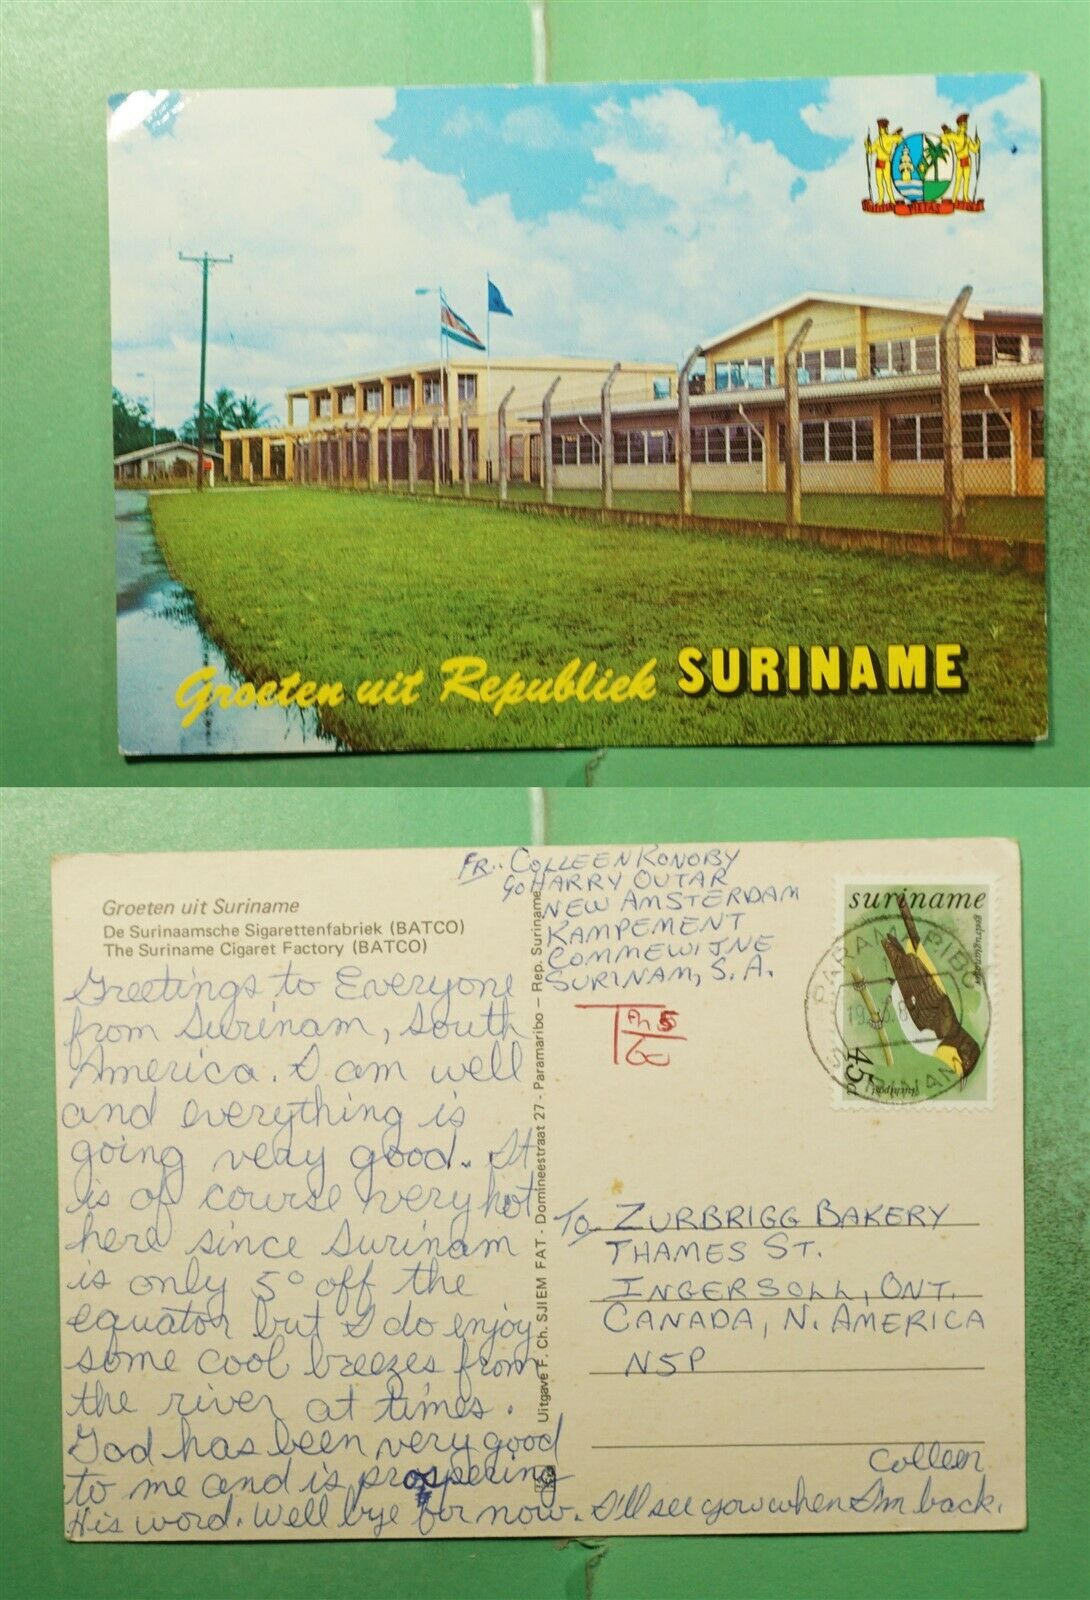 PIETAS
Groeten uit Republiek SURINAME
Groeten uit Suriname
De Surinaamsche Sigarettenfabriek (BATCO)
The Suriname Cigaret Factory (BATCO)
Greetings to Everyone
from Surinam, South
America. I am well
and everything is
going very good. It
is of course very hot
here since Surinam
is only 5° off the
equator but I do enjoy
some cool breezes from
the river at times.
God has been very good
to me and is prospering
His word. Well bye for now. I'll see you when I'm back.
Colleen
Uitgave F. Ch. SJIEM FAT - Domineestraat 27 - Paramaribo - Rep. Suriname
FR: COLLEEN KONOBY
c/o HARRY OUTAR
NEW AMSTERDAM
KAMPEMENT
COMMEWIJNE
SURINAM, S.A.
T
60
suriname
45c
PARAMARIBO
SURINAME
To ZURBRIGG BAKERY
THAMES ST.
INGERSOLL, ONT.
CANADA, N. AMERICA
N5P